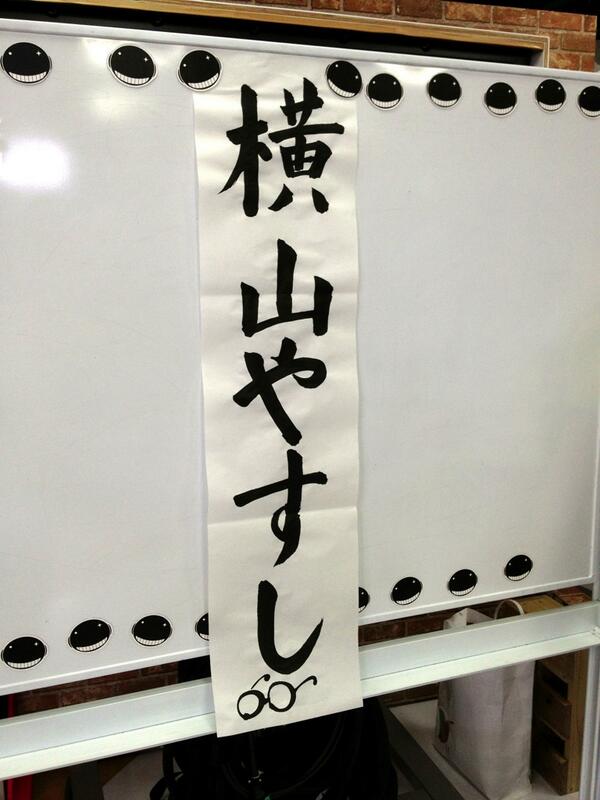 横山やすし